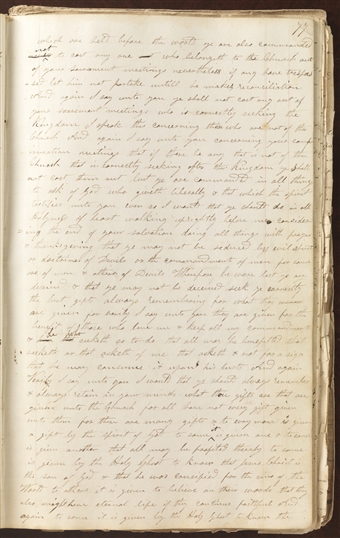 77
which are held before the world ye are also commanded
not to cast any one who belongeth to the Church out
of your sacrament meetings nevertheless if any have trespas
sed let him not partake untill he makes reconciliation
And again I say unto you ye shall not cast any out of
your sacrament meetings who is earnestly seeking the
Kingdom I speak this concerning those who are not of the
Church And again I say unto you concerning your conf
irmation meetings that if there be any that is not of the
Church that is earnestly seeking after the Kingdom ye shall
not cast them out but ye are commanded in all things
to ask of God who giveth liberally & that which the spirit
testifies unto you even so I would that ye should do in all
holyness of heart walking uprightly before me consider
ing the end of your salvation doing all things with prayer
& thanksgiving that ye may not be seduced by evil spirits
or doctrines of Devils or the commandments of men for some
are of men & others of Devils Wherefore beware lest ye are
deceived & that ye may not be deceived seek ye earnestly
the best gifts always remembering for what they
are given for verily I say unto you they are given for the
benefit of those who love me & keep all my commandments
& he that seeketh so to do that all may be benefited that
seeketh or that asketh of me that asketh & not for a sign
that he may consume it upon his lusts And again
Verily I say unto you I would that ye should always remember
& always retain in your minds what those gifts are that are
given unto the Church for all have not every gift given
unto them for there are many gifts & to every man is given
a gift by the spirit of God to some it is given one & to some
is given another that all may be profited thereby to some
it is given by the Holy Ghost to know that Jesus Christ is
the son of God & that he was crucified for the sins of the
World to others it is given to believe on their words that they
also might have eternal life if they continue faithful And
again to some it is given by the Holy Ghost to know the